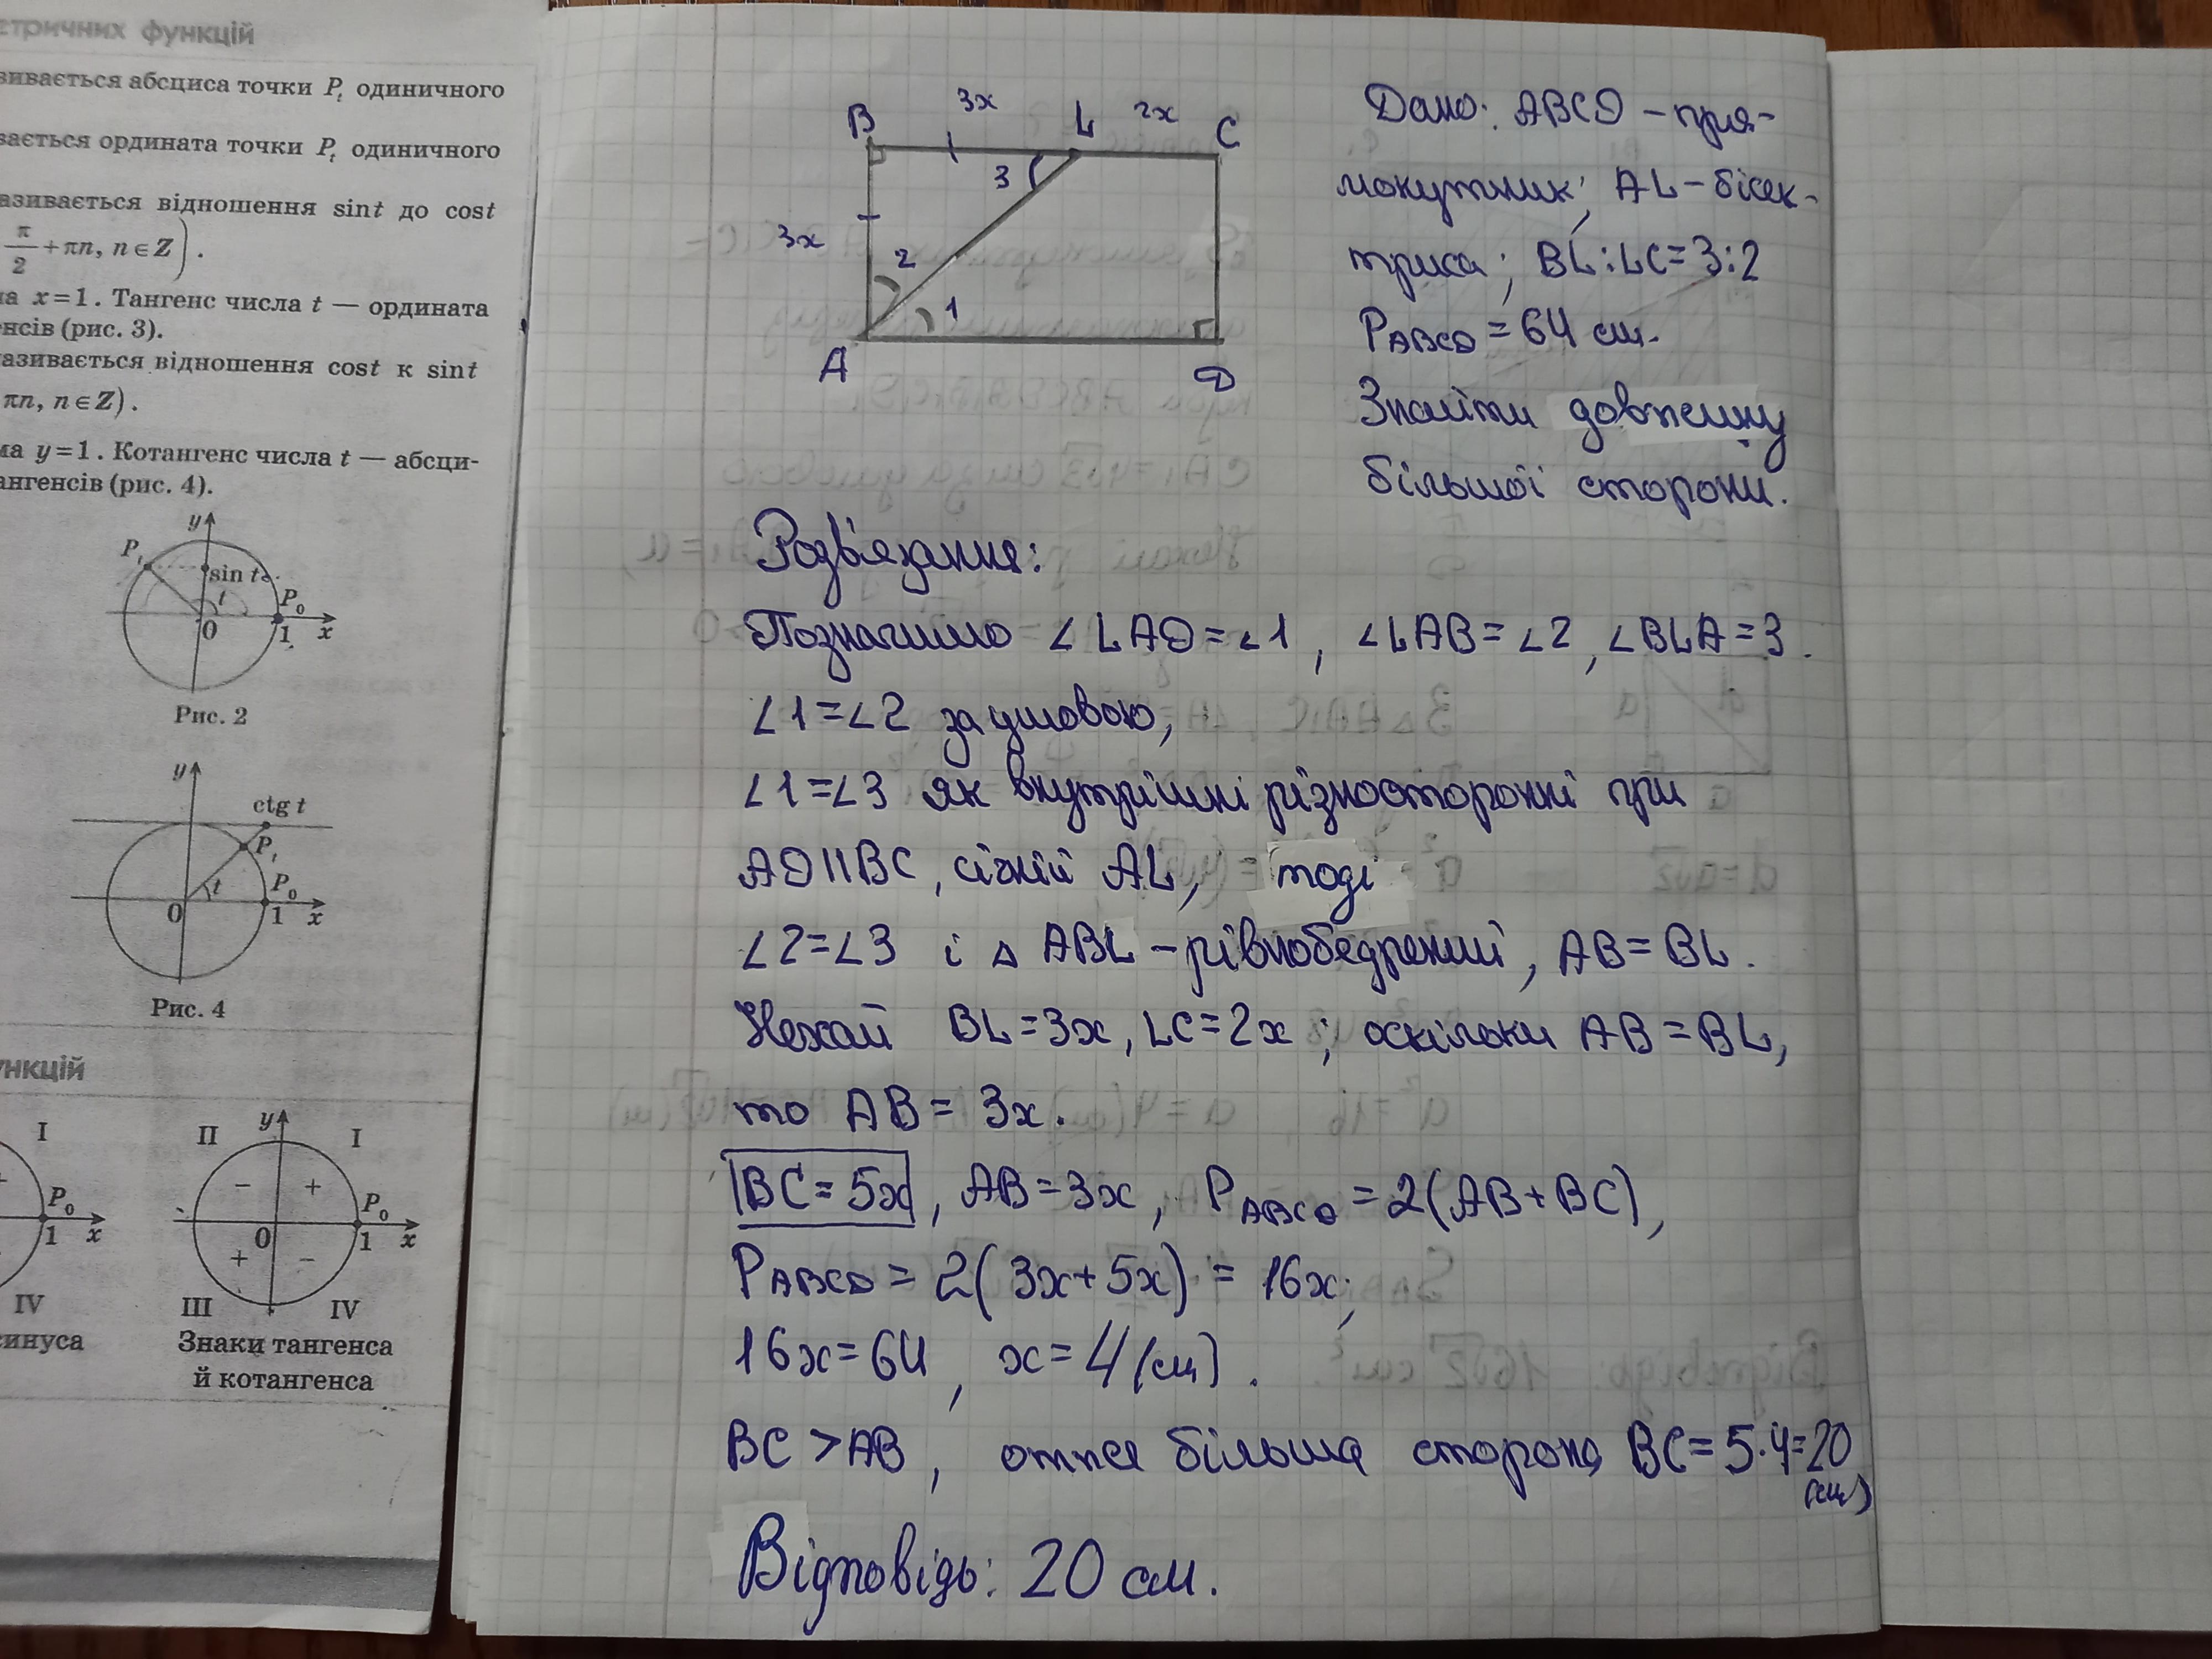 етричних функцій
зивається абсциса точки Pt одиничного
вається ордината точки Pt одиничного
азивається відношення sint до cost
π/2 + πn, n ∈ Z).
на x = 1. Тангенс числа t — ордината
енсів (рис. 3).
азивається відношення cost к sint
πn, n ∈ Z).
ма y = 1. Котангенс числа t — абсци-
ангенсів (рис. 4).
y
Pt
sin t
t
P0
0
1
x
Рис. 2
y
ctg t
Pt
t
P0
0
1
x
Рис. 4
ункцій
I
P0
1
x
IV
синуса
y
II
I
–
+
P0
0
1
x
+
–
III
IV
Знаки тангенса
й котангенса
B
3x
L
2x
C
3
3x
2
1
A
D
Дано: ABCD – пря-
мокутник; AL – бісек-
триса; BL:LC=3:2
PABCD = 64 см.
Знайти довжину
більшої сторони.
Розв'язання:
Позначимо ∠LAD=∠1, ∠LAB=∠2, ∠BLA=3.
∠1=∠2 за умовою,
∠1=∠3 як внутрішні різносторонні при
AD||BC, січній AL, тоді
∠2=∠3 і △ ABL – рівнобедрений, AB=BL.
Нехай BL=3x, LC=2x; оскільки AB=BL,
то AB = 3x.
BC=5x, AB=3x, PABCD = 2(AB+BC),
PABCD = 2(3x+5x) = 16x;
16x=64, x=4(см).
BC > AB, отже більша сторона BC=5·4=20
(см)
Відповідь: 20 см.